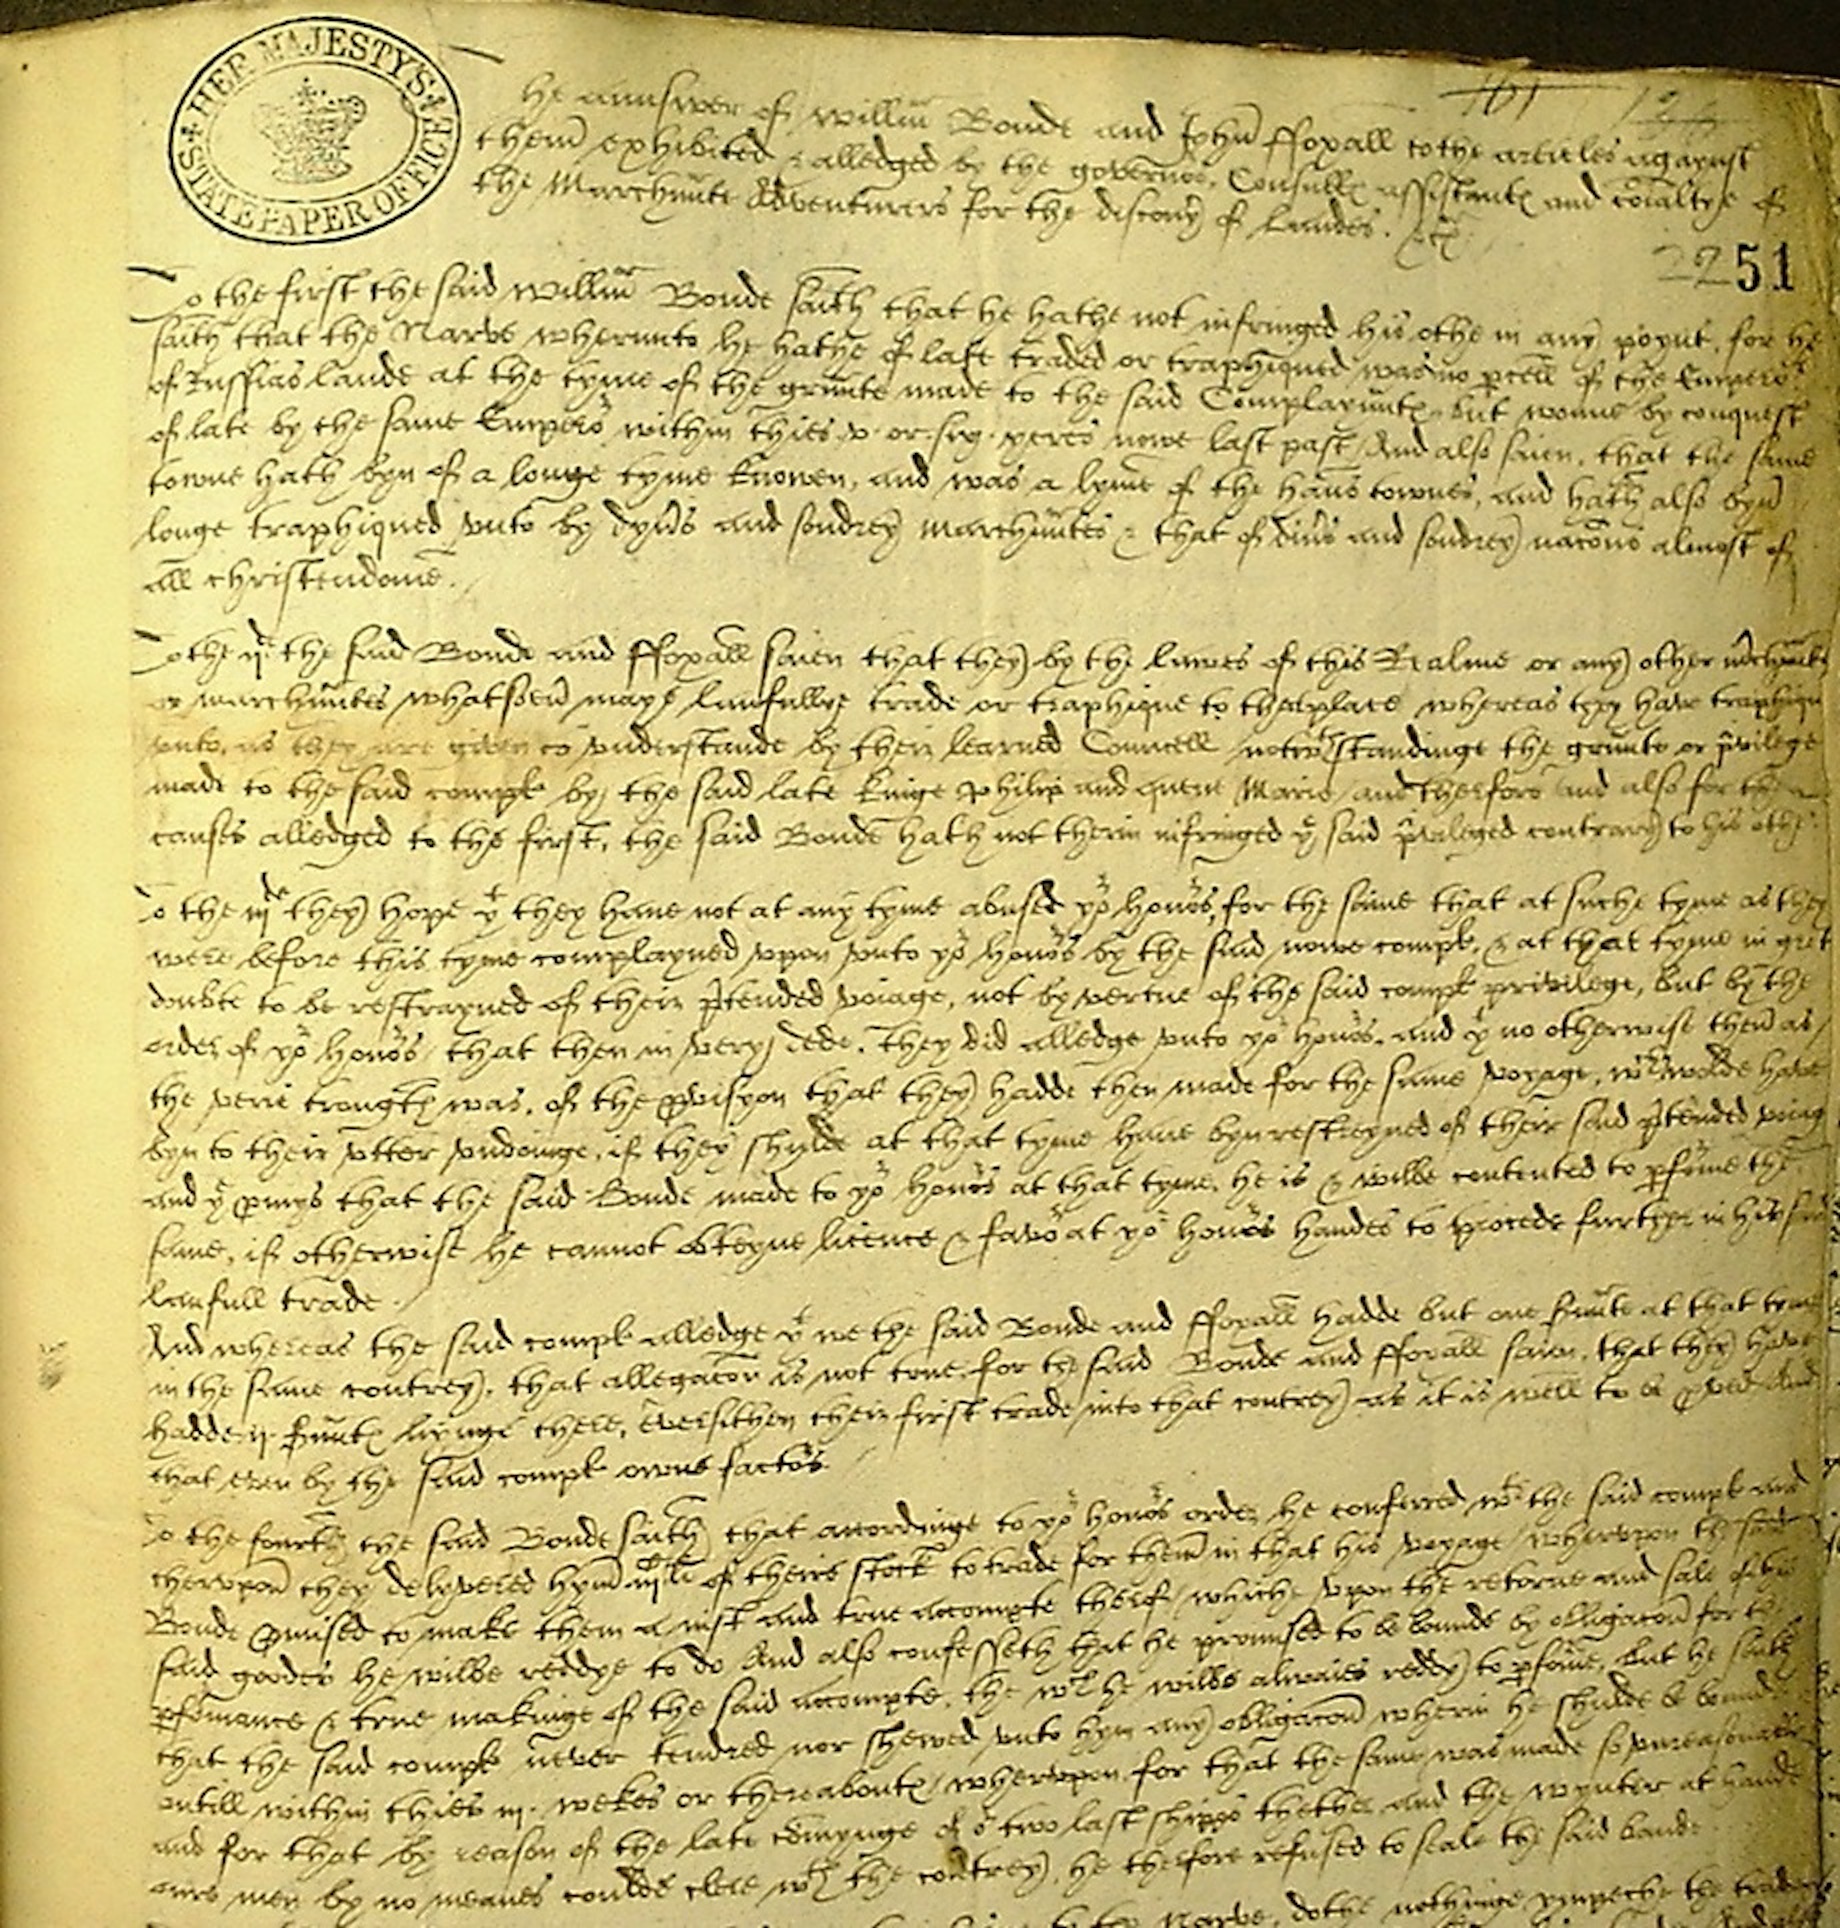 HER MAJESTY'S STATE PAPER OFFICE
The aunswer of Willm Bonde and John ffoxall to the articles agaynst
them exhibited & alledged by the governor, Consulls assistants and coialtye of
the Marchunte Adventurers for the discovy of Landes. &c
2251
To the first the said Willm Bonde saith that he hathe not infringed his othe in any poynt, for he
saith that the Narve wherunto he hathe of late traded or traphiqued was no pcell of the Emperors
of Russias lande at the tyme of the graunte made to the said Complaynunts but wonne by conquest
of late by the same Emperor within thies v or syx yeres nowe last past, And also saien, that the same
towne hath byn of a longe tyme knowen, and was a lyme of the hauns townes, and hath also byn
longe traphiqued unto by dyvs and sondrey marchuntes & that of divs and sondrey nacons almost of
all christendome.
To the ij the said Bonde and ffoxall saien that they by the lawes of this Realme or any other mrchunte
or marchuntes whatsoev maye laufullye trade or traphique to that place whereas they have traphiqu
unto, as they are given to understande by their learned Councell notwthstandinge the graunte or pvilege
made to the said complts by the said late Kinge Philip and quene Marie, and therfore and also for the
causes alledged to the first, the said Bonde hath not therin infringed ye said pvileged contrary to his othe.
To the iij they hope yt they have not at any tyme abused yor honors, for the same that at suche tyme as they
were before this tyme complayned uppon unto yor honors by the said nowe complts, & at that tyme in gret
doubte to be restrayned of their ptended voiage, not by vertue of the said complts privilege, but by the
order of yor honors, that then in very dede, they did alledge unto yor honors, and yt no otherwise then as
the verie trougth was, of the pvisyon that they hadde then made for the same voyage, wch wolde have
byn to their utter undoinge, if they shulde at that tyme have byn restreyned of their said ptended voiag
and ye pmys that the said Bonde made to yor honors at that tyme, he is & wilbe contented to pforme the
same, if otherwise he cannot obteyne licence & favor at yor honors handes to procede further in his said
laufull trade.
And whereas the said complts alledge yt we the said Bonde and ffoxall hadde but one svunte at that tyme
in the same contrey, that allegacon is not true, for the said Bonde and ffoxall saien, that they have
hadde ij svunts lyinge there, ever sithen their first trade into that contrey as it is well to be pved And
that even by the said complts owne factors
To the fourth the said Bonde saith that accordinge to yor honors order he conferred wth the said complts and
therupon they delyvered hym of theire stock to trade for them in that his voyage, wherupon the said
Bonde pmised to make them a iust and true accompte therof, which upon the retorne and sale of the
said goodes he wilbe reddye to do And also confesseth that he promised to be bounde by obligacon for the
pformance & true makinge of the said accompte, the wch he wilbe alwaies reddy to pforme, but he saith
that the said complts never tendred nor shewed unto hym any obligacon wherin he shulde be bounde
untill within thies iij wekes or thereabouts, wherupon for that the same was made so unreasonable
and for that by reason of the late comynge of or two last shipps thether and the wynter at hande
oure men by no meanes coulde clere wth the contrey, he therfore refused to seale the said bande
Narve, dothe nothinge ympeche the trade